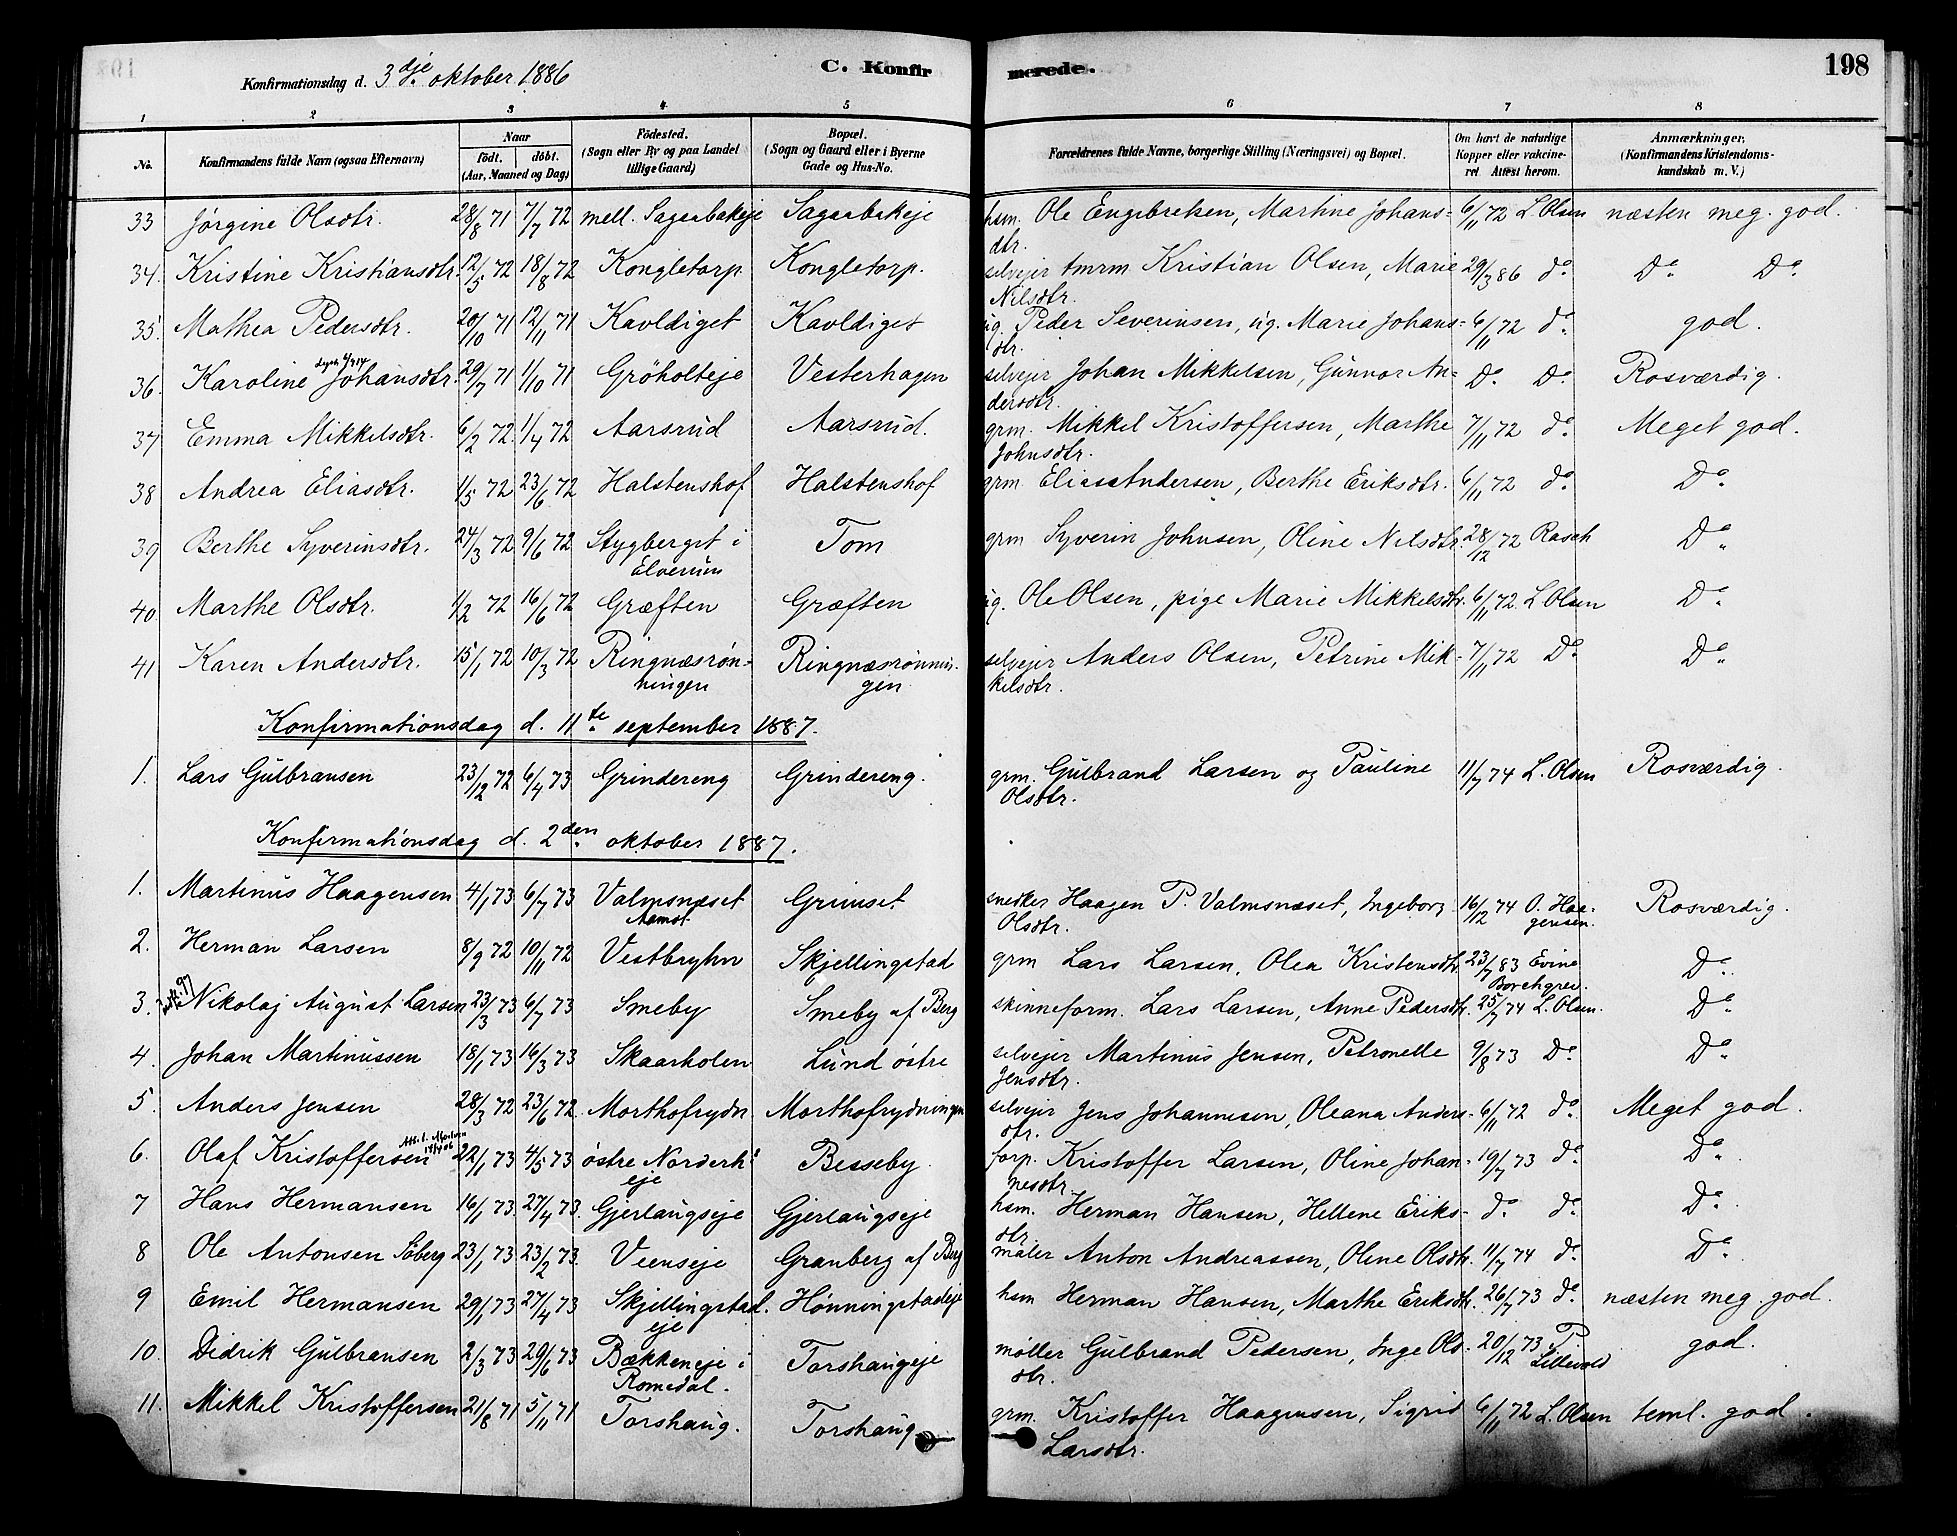 Konfirmationsdag d. 3dje oktober 1886 C. Konfirmerede. 198
1 2 3 4 5 6 7 8
No. Konfirmandens fulde Navn (ogsaa Efternavn) Naar födt. döbt. (Aar, Maaned og Dag) Födested. (Sogn eller By og paa Landet tillige Gaard) Bopæl. (Sogn og Gaard eller i Byerne Gade og Hus-No. Forældrenes fulde Navne, borgerlige Stilling (Næringsvei) og Bopæl. Om havt de naturlige Kopper eller vakcineret. Attest herom. Anmærkninger, (Konfirmandens Kristendomskundskab m. V.)
33 Jørgine Olsdtr. 28/8 71 7/7 72 mell. Sagaabakeje Sagaabakeje hsm. Ole Engebretsen, Martine Johansdtr. 6/11 72 L Olsen næsten meg. god.
34. Kristine Kristiansdtr. 12/5 72 18/8 72 Kongletorp Kongletorp. selvejer tmrm Kristian Olsen, Marie Nilsdtr. 29/7 86 do. Do. Do.
35. Mathea Pedersdtr. 20/10 71 12/11 71 Kavldiget Kavldiget ug. Peder Severinsen, ug. Marie Johansdtr. 6/11 72 do. god.
36. Karoline Johansdtr. 29/7 71 1/10 71 Grøholteje Vesterhagen selvejer Johan Mikkelsen, Gunnor Andersdtr. Do. Do. Rosværdig.
37 Emma Mikkelsdtr. 6/2 72. 1/4 72 Aarsrud Aarsrud. grm. Mikkel Kristoffersen, Marthe Johnsdtr. 7/11 72 do. Meget god.
38 Andrea Eliasdtr. 1/5 72 23/6 72 Halstenshof Halstenshof grm. Elias Andersen, Berthe Eriksdtr. 6/11 72 do. Do.
39 Berthe Syverinsdtr. 24/3 72 9/6 72 Stygberget i Elverum Tom grm Syverin Johnsen, Oline Nilsdtr. 28/12 72 Rasch Do.
40. Marthe Olsdtr. 1/2 72 16/6 72 Græften Græften ug. Ole Olsen, pige Marie Mikkelsdtr. 6/11 72. L Olsen Do.
41 Karen Andersdtr. 15/1 72 10/3 72 Ringnæsrønningen Ringnæsrønningen selvejer Anders Olsen, Petrine Mikkelsdtr. 7/11 72 Do. Do.
Konfirmationsdag d. 11te september 1887.
1. Lars Gulbransen 23/12 72 6/4 73 Grindereng Grindereng. grm. Gulbrand Larsen og Pauline Olsdtr. 11/7 74 L. Olsen Rosværdig.
Konfirmationsdag d. 2den oktober 1887.
1. Martinus Haagensen 4/1 73 6/7 73 Valmsnæset Aamot Grimset snedker Haagen P. Valmsnæset, Ingeborg Olsdtr. 16/12 74 O. Haagensen. Rosværdig.
2. Herman Larsen 8/9 72 10/11 72 Vestbryhn Skjellingstad grm Lars Larsen, Olea Kristensdtr. 23/7 83 Evine Borchgrev. Do.
3. Nikolaj August Larsen 23/3 73 6/7 73 Smeby Smeby af Berg skinneform. Lars Larsen, Anne Pedersdtr. 25/7 74 L. Olsen. Do.
4. Johan Martinussen 18/1 73 16/3 73 Skaarholen Lund østre selvejer Martinus Jensen, Petronelle Jensdtr. 9/8 73 Do. Do.
5. Anders Jensen 28/3 72 23/6 72. Morthofrydn Morthofrydningen selvejer Jens Johannesen, Oleana Andersdtr. 6/11 72 do. Meget god.
6. Olaf Kristoffersen 22/1 73 4/5 73 østre Norderh. eje Besseby. forp. Kristoffer Larsen, Oline Johannesdtr. 19/7 73 do. Do.
7 Hans Hermansen 16/1 73 27/4 73. Gjerlaugseje Gjerlaugseje hsm. Herman Hansen, Hellene Eriksdtr. do. do. Do.
8 Ole Antonsen Søberg 23/1 73 23/2 73. Veenseje Granberg af Berg maler Anton Andreassen, Oline Olsdtr. 11/7 74 do. Do.
9 Emil Hermansen 29/1 73 27/4 73 Skjellingstad. eje Hønningstadeje hsm Herman Hansen, Marthe Eriksdtr. 26/7 73 do. næsten meg. god.
10. Didrik Gulbransen 2/3 73 29/6 73 Bækkeneje i Romedal. Torshaugeje møller Gulbrand Pedersen, Inge Olsdtr. 20/12 73 P Lillevold god.
11. Mikkel Kristoffersen 21/8 71 5/11 71 Torshaug. Torshaug grm. Kristoffer Haagensen, Sigrid Larsdtr. 6/11 72 L. Olsen teml. god.